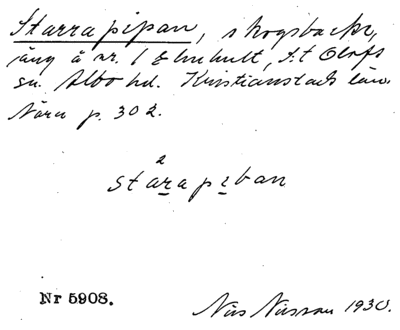 Starrapipan, skogsbacke,
äng å nr. 1 Elnehult, S:t Olofs
sn. Albo hd. Kristianstads län.
Nära p. 302.
2
starapiban
Nr 5908.
Nils Nilsson 1930.